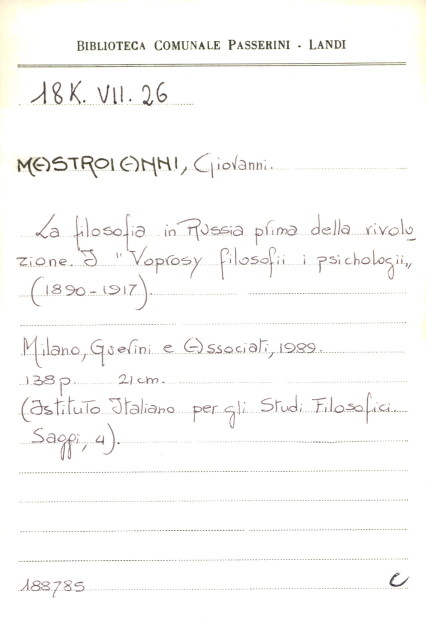 BIBLIOTECA COMUNALE PASSERINI - LANDI
18K. VII. 26
MASTROIANNI, Giovanni.
La filosofia in Russia prima della rivolu
zione. I "Voprosy filosofii i psichologii„
(1890-1917).
Milano, Guerini e Associati, 1989.
138 p. 21 cm.
(Istituto Italiano per gli Studi Filosofici.
Saggi, 4).
188785 C